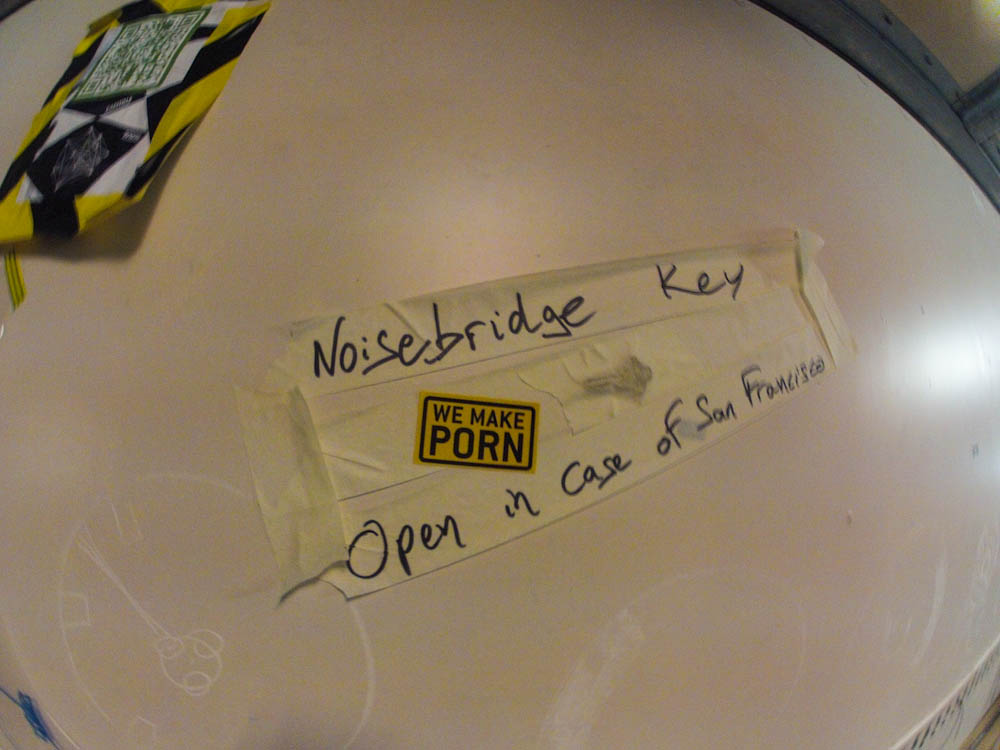 Noisebridge Key
WE MAKE
PORN
Open in case of San Francisco